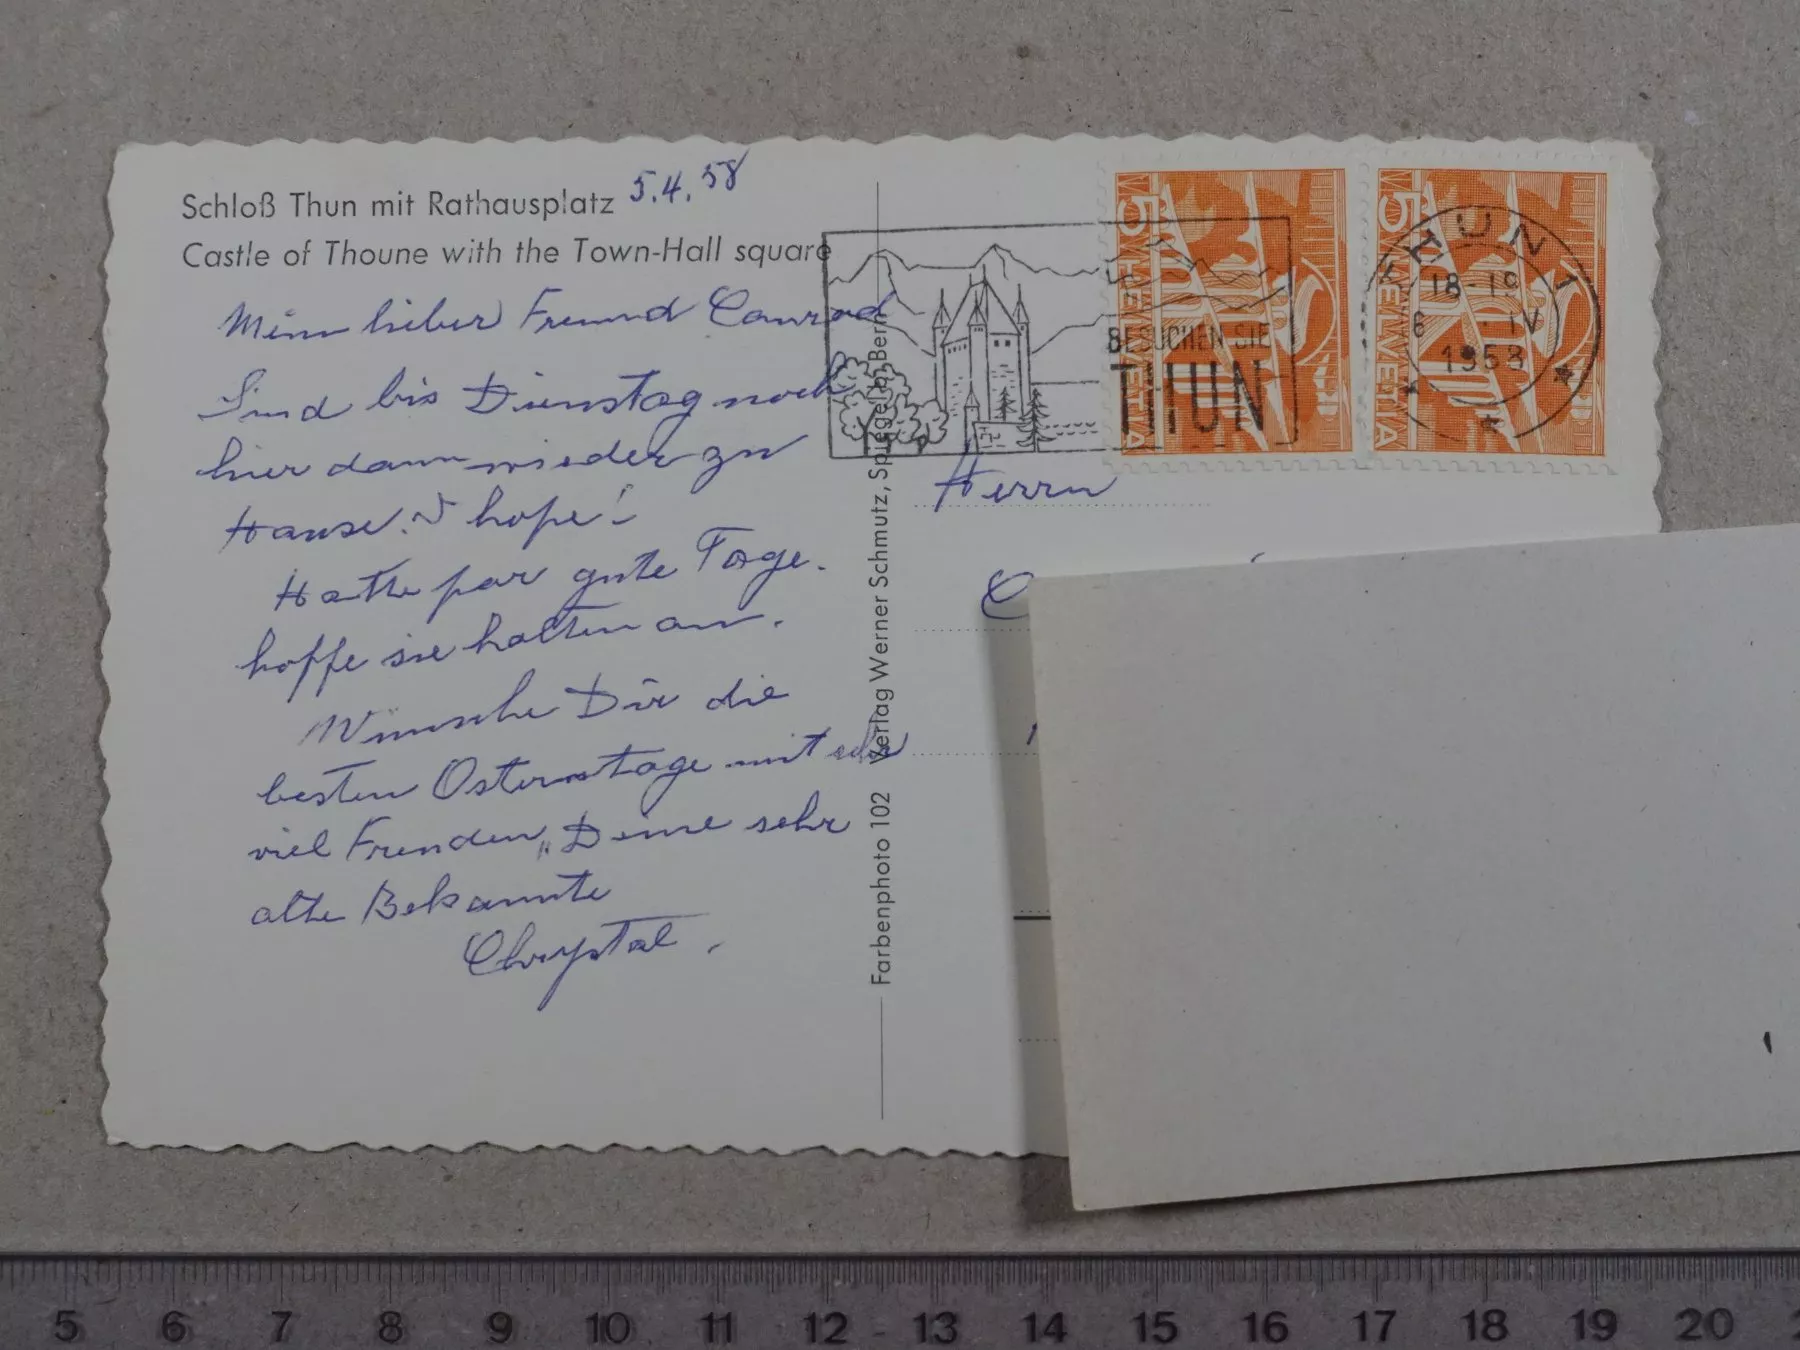 Schloß Thun mit Rathausplatz 5.4.58
Castle of Thoune with the Town-Hall square
Mein lieber Freund Conrad
Sind bis Dienstag noch
hier dann wieder zu
Hause. I hope!
Hatte par gute Tage.
hoffe sie halten an.
Wünsche Dir die
besten Osternstage mit sehr
viel Freuden, Deine sehr
alte Bekannte
Chrystal.
Farbenphoto 102 Verlag Werner Schmutz, Spiegel b/Bern
BESUCHEN SIE
THUN
5 HELVETIA
5 HELVETIA
THUN 1
18-19
6 . IV
1958
Herrn
5 6 7 8 9 10 11 12 13 14 15 16 17 18 19 20